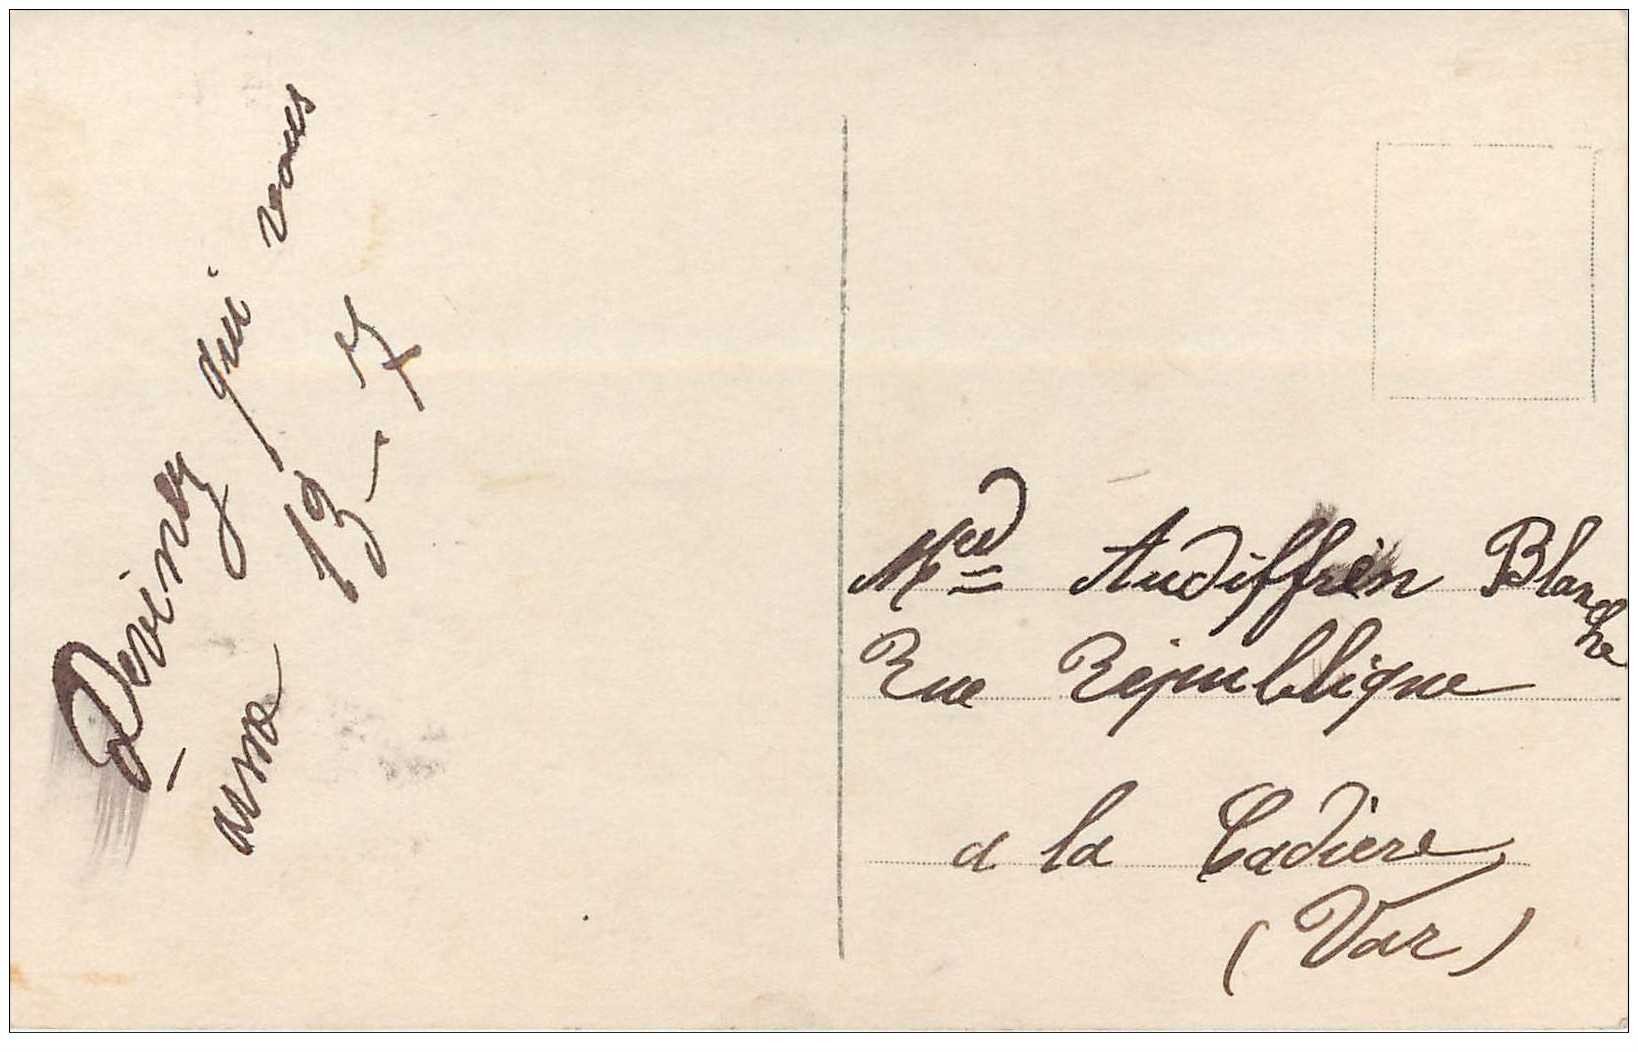 Devinez qui vous
aime 13-7
Med Audiffren Blanche
Rue République
a la Cadiere
(Var)